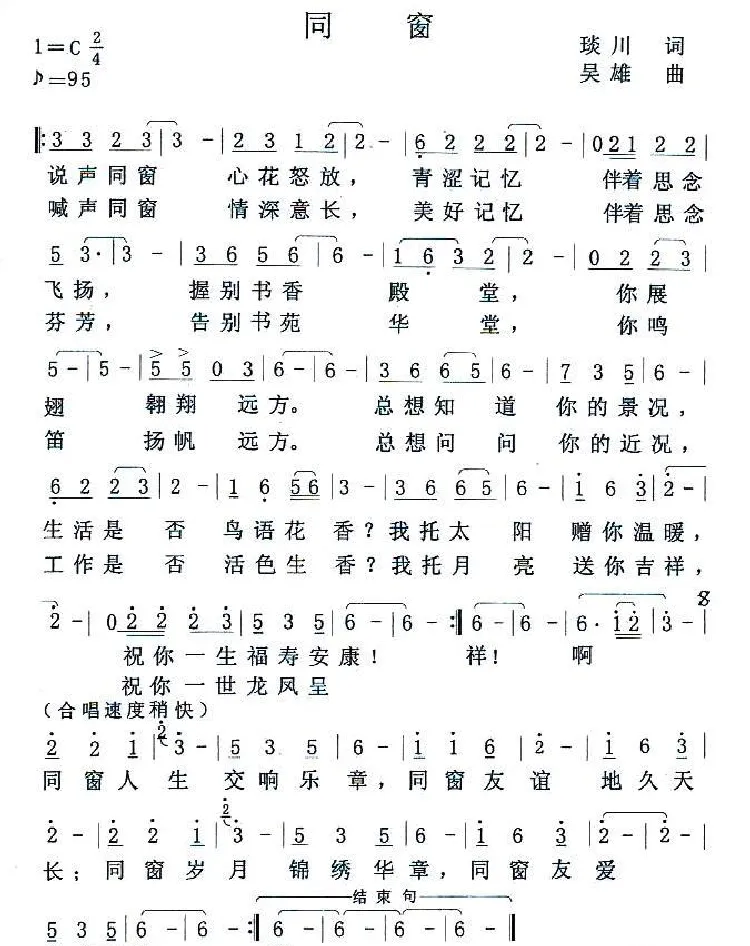 同 窗
1=C 2/4 琰川 词
♪=95 吴雄 曲
‖: 3 3 2 3 | 3 - | 2 3 1 2 | 2 - | 6 2 2 2 | 2 - | 0 2 1 2 2 |
说声同窗 心花怒放， 青涩记忆 伴着思念
喊声同窗 情深意长， 美好记忆 伴着思念
5 3· | 3 - | 3 6 5 6 | 6 - | 1 6 3 2 | 2 - | 0 2 2 3 |
飞扬， 握别书香 殿 堂， 你展
芬芳， 告别书苑 华 堂， 你鸣
5 - | 5 - | 5 5 0 3 | 6 - | 6 - | 3 6 6 5 | 6 - | 7 3 5 | 6 - |
翅 翱翔 远方。 总想知 道 你的景况，
笛 扬帆 远方。 总想问 问 你的近况，
6 2 2 3 | 2 - | 1 6 5 6 | 3 - | 3 6 6 5 | 6 - | 1 6 3 | 2 - |
生活是 否 鸟语花 香？我托太 阳 赠你温暖，
工作是 否 活色生 香？我托月 亮 送你吉祥，
2 - | 0 2 2 2 3 | 5 3 5 | 6 - | 6 - :‖ 6 - | 6 - | 6· 1 2 | 3 - | 8
祝你一生福寿安康！ 祥！ 啊
祝你一世龙凤呈
（合唱速度稍快）
2 2 1 | 2 3· | 5 3 5 | 6 - | 1 1 6 | 2 - | 1 6 3 |
同窗人 生 交响乐 章，同窗友 谊 地久天
2 - | 2 2 1 | 2 3· | 5 3 5 | 6 - | 1 1 6 | 2 - |
长；同窗岁 月 锦绣华 章，同窗友 爱
结束句
5 3 5 | 6 - | 6 - :‖ 6 - | 6 - | 6 - ‖